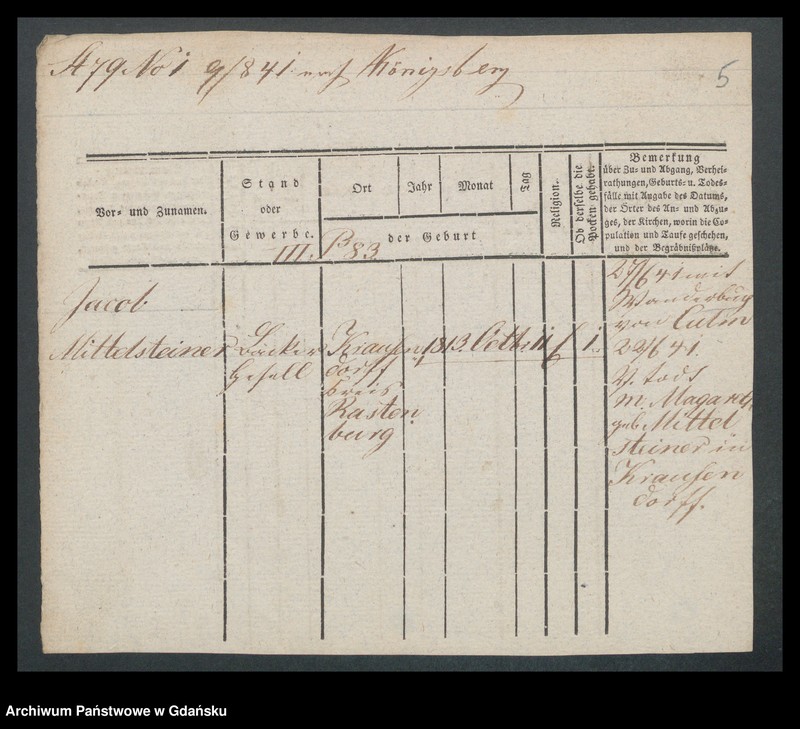 A 79 No 1 9/8 41 nach Königsberg
5
Vor- und Zunamen.
Stand
oder
Gewerbe.
Ort
Jahr
Monat
Tag
der Geburt
Religion.
Ob derselbe die
Pocken gehabt.
Bemerkung
über Zu- und Abgang, Verhei-
rathungen, Geburts- u. Todes-
fälle mit Angabe des Datums,
der Örter des An- und Abzu-
ges, der Kirchen, worin die Co-
pulation und Taufe geschehen,
und der Begräbnißplätze.
III.
83
Jacob
Mittelsteiner
Bäcker
Gesell
Krausen
dorff
Kreis
Rasten
burg
1813.
Octbr
11
27/6 41 mit
Wanderbuch
von Culm
22/6 41.
V. todt
M. Magareth
geb. Mittel
steiner in
Krausen
dorff.
Archiwum Państwowe w Gdańsku